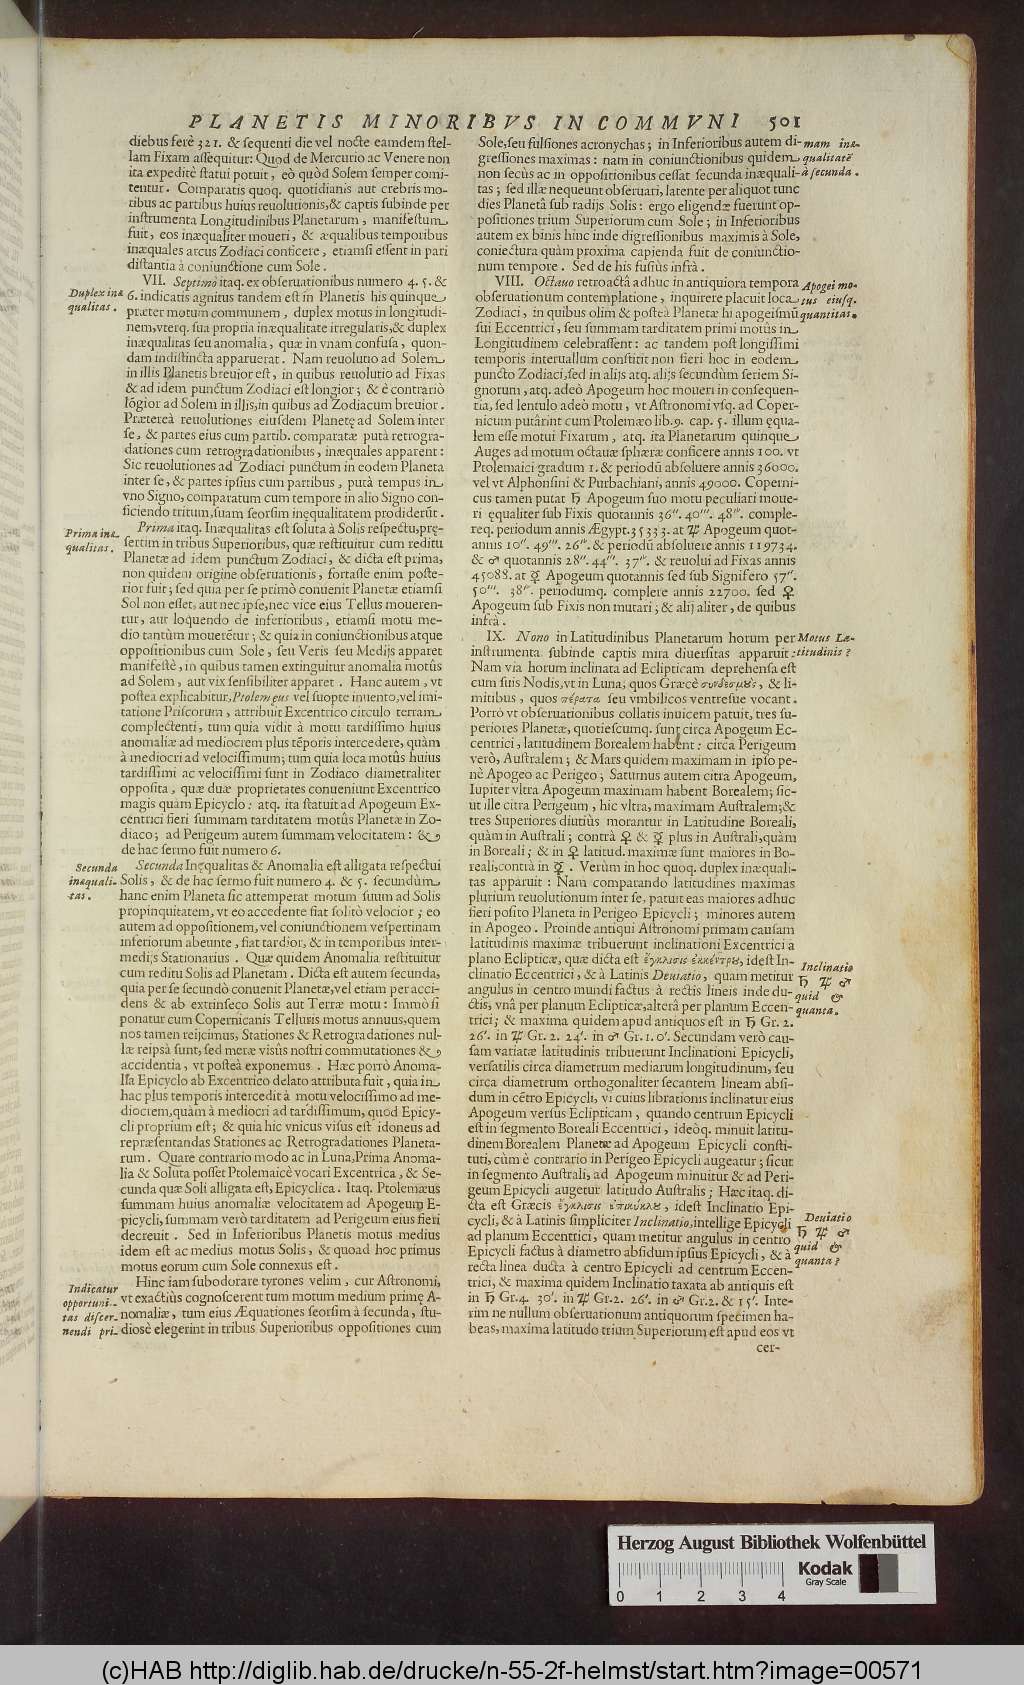 PLANETIS MINORIBVS IN COMMVNI 501
diebus ferè 321. & sequenti die vel nocte eamdem stel-
lam Fixam assequitur: Quod de Mercurio ac Venere non
ita expeditè statui potuit, eò quòd Solem semper comi-
tentur. Comparatis quoq. quotidianis aut crebris mo-
tibus ac partibus huius reuolutionis,& captis subinde per
instrumenta Longitudinibus Planetarum, manifestum
fuit, eos inæqualiter moueri, & æqualibus temporibus
inæquales arcus Zodiaci conficere, etiamsi essent in pari
distantia à coniunctione cum Sole.
Duplex inæ
qualitas.
VII. Septimò itaq. ex obseruationibus numero 4. 5. &
6. indicatis agnitus tandem est in Planetis his quinque
præter motum communem, duplex motus in longitudi-
nem,vterq. sua propria inæqualitate irregularis,& duplex
inæqualitas seu anomalia, quæ in vnam confusa, quon-
dam indistincta apparuerat. Nam reuolutio ad Solem
in illis Planetis breuior est, in quibus reuolutio ad Fixas
& ad idem punctum Zodiaci est longior; & è contrariò
lōgior ad Solem in illis,in quibus ad Zodiacum breuior.
Prætereà reuolutiones eiusdem Planetę ad Solem inter
se, & partes eius cum partib. comparatæ putà retrogra-
dationes cum retrogradationibus, inæquales apparent:
Sic reuolutiones ad Zodiaci punctum in eodem Planeta
inter se, & partes ipsius cum partibus, putà tempus in
vno Signo, comparatum cum tempore in alio Signo con-
ficiendo tritum,suam seorsim inęqualitatem prodiderūt.
Prima inæ
qualitas.
Prima itaq. Inæqualitas est soluta à Solis respectu,prę-
sertum in tribus Superioribus, quæ restituitur cum reditu
Planetæ ad idem punctum Zodiaci, & dicta est prima,
non quidem origine obseruationis, fortasse enim poste-
rior fuit; sed quia per se primò conuenit Planetæ etiamsi
Sol non esset, aut nec ipse,nec vice eius Tellus moueren-
tur, aut loquendo de inferioribus, etiamsi motu me-
dio tantùm mouerētur; & quia in coniunctionibus atque
oppositionibus cum Sole, seu Veris seu Medijs apparet
manifestè, in quibus tamen extinguitur anomalia motûs
ad Solem, aut vix sensibiliter apparet. Hanc autem, vt
posteà explicabitur,Ptolemęus vel suopte inuento,vel imi-
tatione Priscorum, attribuit Excentrico circulo terram
complectenti, tum quia vidit à motu tardissimo huius
anomaliæ ad mediocrem plus tēporis intercedere, quàm
à mediocri ad velocissimum; tum quia loca motûs huius
tardissimi ac velocissimi sunt in Zodiaco diametraliter
opposita, quæ duæ proprietates conueniunt Excentrico
magis quàm Epicyclo: atq. ita statuit ad Apogeum Ex-
centrici fieri summam tarditatem motûs Planetæ in Zo-
diaco; ad Perigeum autem summam velocitatem: &
de hac sermo fuit numero 6.
Secunda
inæquali-
tas.
Secunda Inęqualitas & Anomalia est alligata respectui
Solis, & de hac sermo fuit numero 4. & 5. secundùm
hanc enim Planeta sic attemperat motum suum ad Solis
propinquitatem, vt eo accedente fiat solitò velocior; eo
autem ad oppositionem, vel coniunctionem vespertinam
inferiorum abeunte, fiat tardior, & in temporibus inter-
medijs Stationarius. Quæ quidem Anomalia restituitur
cum reditu Solis ad Planetam. Dicta est autem secunda,
quia per se secundò conuenit Planetæ,vel etiam per acci-
dens & ab extrinseco Solis aut Terræ motu: Immò si
ponatur cum Copernicanis Telluris motus annuus,quem
nos tamen reijcimus, Stationes & Retrogradationes nul-
læ reipsà sunt, sed meræ visûs nostri commutationes &
accidentia, vt posteà exponemus. Hæc porrò Anoma-
lia Epicyclo ab Excentrico delato attributa fuit, quia in
hac plus temporis intercedit à motu velocissimo ad me-
diocrem,quàm à mediocri ad tardissimum, quod Epicy-
cli proprium est; & quia hic vnicus visus est idoneus ad
repræsentandas Stationes ac Retrogradationes Planeta-
rum. Quare contrario modo ac in Luna,Prima Anoma-
lia & Soluta posset Ptolemaicè vocari Excentrica, & Se-
cunda quæ Soli alligata est, Epicyclica. Itaq. Ptolemæus
summam huius anomaliæ velocitatem ad Apogeum E-
picycli,summam verò tarditatem ad Perigeum eius fieri
decreuit. Sed in Inferioribus Planetis motus medius
idem est ac medius motus Solis, & quoad hoc primus
motus eorum cum Sole connexus est.
Indicatur
opportuni-
tas discer-
nendi pri-
Hinc iam subodorare tyrones velim, cur Astronomi,
vt exactiùs cognoscerent tum motum medium primę A-
nomaliæ, tum eius Æquationes seorsim à secunda, stu-
diosè elegerint in tribus Superioribus oppositiones cum
Sole,seu fulsiones acronychas; in Inferioribus autem di-
gressiones maximas: nam in coniunctionibus quidem
non secùs ac in oppositionibus cessat secunda inæquali-
tas; sed illæ nequeunt obseruari, latente per aliquot tunc
dies Planetâ sub radijs Solis: ergo eligendæ fuerunt op-
positiones trium Superiorum cum Sole; in Inferioribus
autem ex binis hinc inde digressionibus maximis à Sole,
coniectura quàm proxima capienda fuit de coniunctio-
num tempore. Sed de his fusiùs infrà.
mam inæ-
qualitatē
à secunda.
VIII. Octauo retroactâ adhuc in antiquiora tempora
obseruationum contemplatione, inquirere placuit loca
Zodiaci, in quibus olim & posteà Planetæ hi apogeismū
sui Eccentrici, seu summam tarditatem primi motûs in
Longitudinem celebrassent: ac tandem post longissimi
temporis interuallum constitit non fieri hoc in eodem
puncto Zodiaci,sed in alijs atq. alijs secundùm seriem Si-
gnorum, atq. adeò Apogeum hoc moueri in consequen-
tia, sed lentulo adeò motu, vt Astronomi vsq. ad Coper-
nicum putârint cum Ptolemæo lib.9. cap. 5. illum ęqua-
lem esse motui Fixarum, atq. ita Planetarum quinque
Auges ad motum octauæ sphæræ conficere annis 100. vt
Ptolemaici gradum 1. & periodū absoluere annis 36000.
vel vt Alphonsini & Purbachiani, annis 49000. Coperni-
cus tamen putat ♄ Apogeum suo motu peculiari moue-
ri ęqualiter sub Fixis quotannis 36''. 40'''. 48''''. comple-
req. periodum annis Ægypt.35333. at ♃ Apogeum quot-
annis 10''. 49'''. 26''''. & periodū absoluere annis 119734.
& ♂ quotannis 28''. 44'''. 37''''. & reuolui ad Fixas annis
45088. at ☿ Apogeum quotannis sed sub Signifero 57''.
50'''. 38''''. periodumq. complere annis 22700. sed ♀
Apogeum sub Fixis non mutari; & alij aliter, de quibus
infrà.
Apogei mo-
tus eiusq.
quantitas.
IX. Nono in Latitudinibus Planetarum horum per
instrumenta subinde captis mira diuersitas apparuit:
Nam via horum inclinata ad Eclipticam deprehensa est
cum suis Nodis,vt in Luna, quos Græcè συνδεσμοὺς, & li-
mitibus, quos πέρατα seu vmbilicos ventresue vocant.
Porrò vt obseruationibus collatis inuicem patuit, tres su-
periores Planetæ, quotiescumq. sunt circa Apogeum Ec-
centrici, latitudinem Borealem habent: circa Perigeum
verò, Australem; & Mars quidem maximam in ipso pe-
nè Apogeo ac Perigeo; Saturnus autem citra Apogeum,
Iupiter vltra Apogeum maximam habent Borealem; sic-
ut ille citra Perigeum, hic vltra, maximam Australem;&
tres Superiores diutiùs morantur in Latitudine Boreali,
quàm in Australi; contrà ♀ & ☿ plus in Australi,quàm
in Boreali; & in ♀ latitud. maximæ sunt maiores in Bo-
reali,contrà in ☿. Verùm in hoc quoq. duplex inæquali-
tas apparuit: Nam comparando latitudines maximas
plurium reuolutionum inter se, patuit eas maiores adhuc
fieri posito Planeta in Perigeo Epicycli; minores autem
in Apogeo. Proinde antiqui Astronomi primam causam
latitudinis maximæ tribuerunt inclinationi Excentrici à
plano Eclipticæ, quæ dicta est ἔγκλισις ἐκκέντρου, idest In-
clinatio Eccentrici, & à Latinis Deuiatio, quam metitur
angulus in centro mundi factus à rectis lineis inde du-
ctis, vnâ per planum Eclipticæ,alterâ per planum Eccen-
trici; & maxima quidem apud antiquos est in ♄ Gr. 2.
26'. in ♃ Gr. 2. 24'. in ♂ Gr. 1. 0'. Secundam verò cau-
sam variatæ latitudinis tribuerunt Inclinationi Epicycli,
versatilis circa diametrum mediarum longitudinum, seu
circa diametrum orthogonaliter secantem lineam absi-
dum in cētro Epicycli, vi cuius librationis inclinatur eius
Apogeum versus Eclipticam, quando centrum Epicycli
est in segmento Boreali Eccentrici, ideòq. minuit latitu-
dinem Borealem Planetæ ad Apogeum Epicycli consti-
tuti, cùm è contrario in Perigeo Epicycli augeatur; sicut
in segmento Australi, ad Apogeum minuitur & ad Peri-
geum Epicycli augetur latitudo Australis; Hæc itaq. di-
cta est Græcis ἔγκλισις ἐπικύκλου, idest Inclinatio Epi-
cycli, & à Latinis simpliciter Inclinatio,intellige Epicycli
ad planum Eccentrici, quam metitur angulus in centro
Epicycli factus à diametro absidum ipsius Epicycli, & à
recta linea ducta à centro Epicycli ad centrum Eccen-
trici, & maxima quidem Inclinatio taxata ab antiquis est
in ♄ Gr.4. 30'. in ♃ Gr.2. 26'. in ♂ Gr.2. & 15'. Inte-
rim ne nullum obseruationum antiquorum specimen ha-
beas, maxima latitudo trium Superiorum est apud eos vt
cer-
Motus La-
titudinis?
Inclinatio
♄ ♃ ♂
quid &
quanta.
Deuiatio
♄ ♃ ♂
quid &
quanta?
Herzog August Bibliothek Wolfenbüttel
Kodak
Gray Scale
0 1 2 3 4
(c)HAB http://diglib.hab.de/drucke/n-55-2f-helmst/start.htm?image=00571